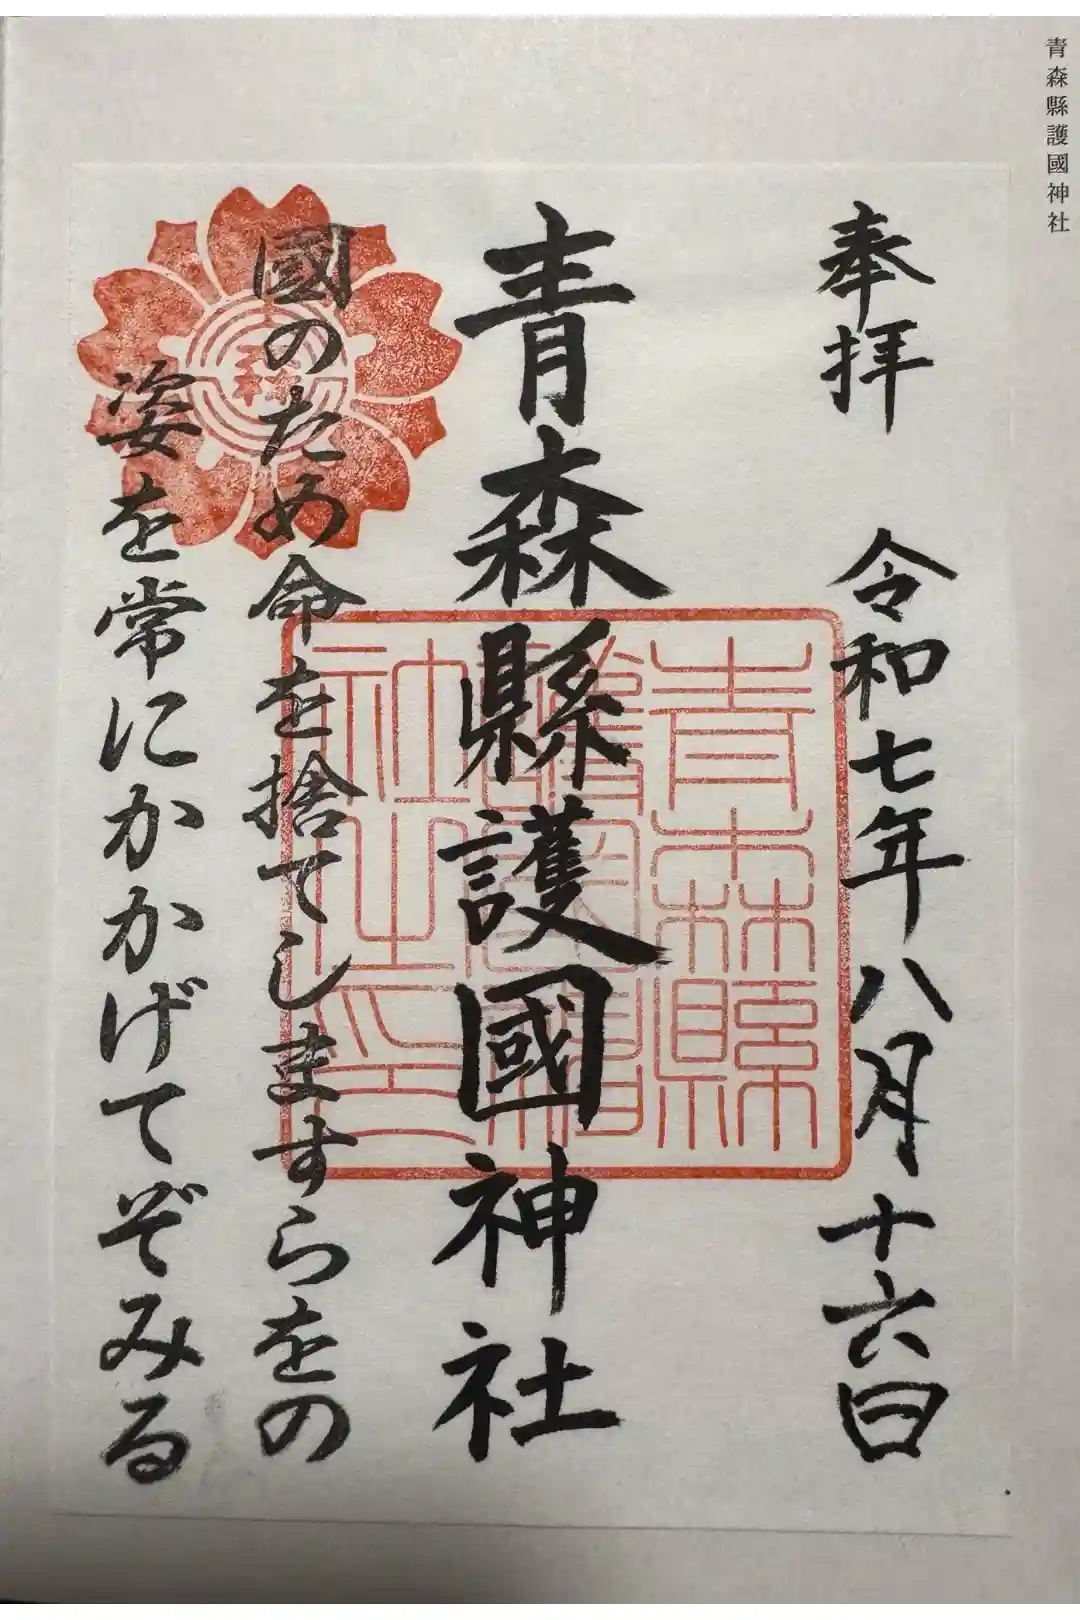 青森縣護國神社
奉拝 令和七年八月十六日
青森縣護國神社
國のため命を捨てしますらをの
姿を常にかかげてぞみる
青森縣
護國神
社之印